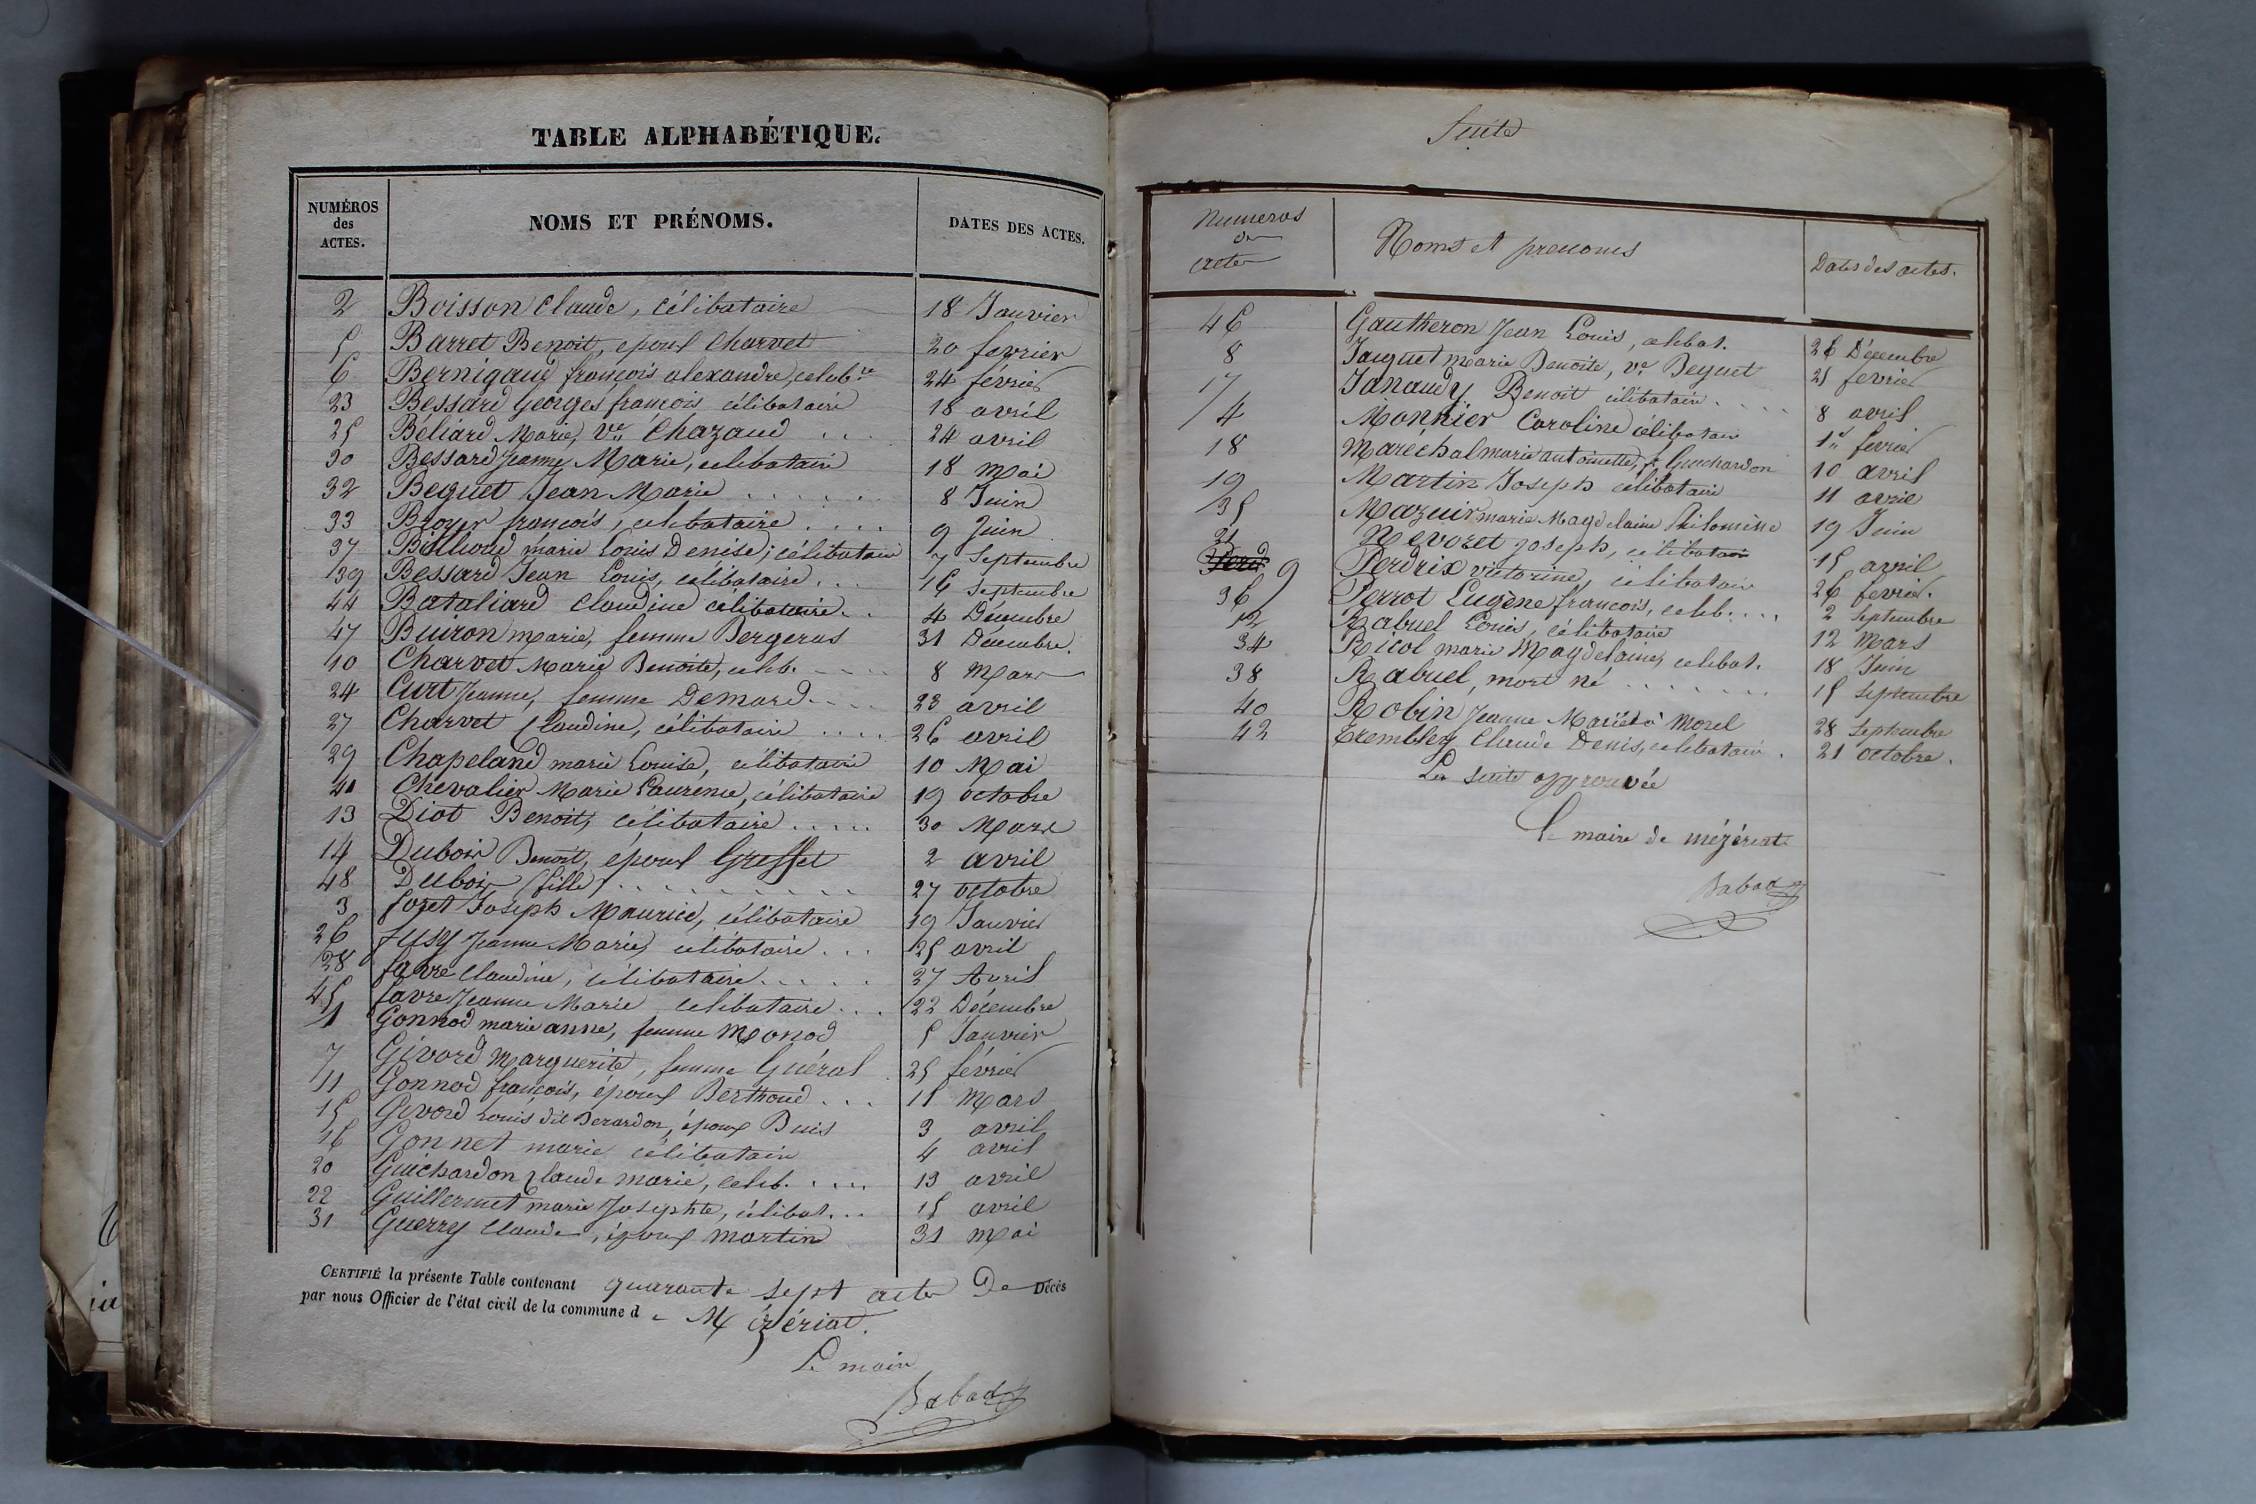 TABLE ALPHABÉTIQUE.
NUMÉROS des ACTES. NOMS ET PRÉNOMS. DATES DES ACTES.
2 Boisson Claude, célibataire 18 Janvier
5 Barret Benoit, epoux Charvet 20 fevrier
6 Bernigaud françois alexandre, celib.re 24 février
23 Bessard Georges françois célibataire 18 avril
25 Béliard Marie, Ve Chazaud . . . 24 avril
30 Bessard Jeanne Marie, celibataire 18 Mai
32 Beguet Jean Marie . . . . . . 8 Juin
33 Broyer françois, celibataire . . . . 9 Juin
37 Billoud marie Louis Denise, célibataire 7 Septembre
39 Bessard Jean Louis, célibataire . . . 16 Septembre
44 Bataliard Claudine célibataire . . 4 Décembre
47 Buiron marie, femme Bergeras 31 Décembre.
10 Charvet Marie Benoite, celib. 8 Mars
24 Curt Jeanne, femme Demard . . . . 23 avril
27 Charvet Claudine, célibataire . . . . 26 avril
29 Chapeland marie Louise, célibataire 10 Mai
41 Chevalier Marie Laurence, célibataire 19 octobre
13 Diot Benoit, célibataire . . . . . 30 Mars
14 Dubois Benoit, epoux Greffet 2 avril
48 Dubois (fille) . . . . . . . . . 27 octobre
3 foret Joseph Maurice, célibataire 19 Janvier
26 fusy Jeanne Marie, celibataire . . . 25 avril
28 favre Claudine, célibataire . . . . . 27 Avril
45 favre Jeanne Marie celibataire . . . 22 Décembre
1 Gonnod marie anne, femme Monod 5 Janvier
7 Givord Marguerite, femme Guéral 25 février
11 Gonnod françois, époux Berthoud . . . 11 Mars
15 Givord Louis dit Berardon, époux Buis 3 avril
16 Gonnet marie célibataire 4 avril
20 Guichardon Claude marie, celib. . . . . 13 avril
22 Guillermet marie Josephte, célibat. . . 15 avril
31 Guerry Claude, époux Martin 31 Mai
CERTIFIÉ la présente Table contenant quarante sept actes De Décès
par nous Officier de l'état civil de la commune d e Mézériat.
Le maire
Babad
Suite
Numeros des actes Noms et prenoms Dates des actes.
46 Gautheron Jean Louis, célibat. 26 Décembre
8 Jaiguet marie Benoite, ve Beguet 25 fevrier
17 Janaudy Benoit célibataire . . . . 8 avril
4 Monnier Caroline célibataire 1er fevrier
18 Maréchal marie antoinette, fe Guichardon 10 avril
19 Martin Joseph célibataire 11 avril
35 Mazuir marie Magdelaine Philomène 19 Juin
21 Nevoret Joseph, célibataire 15 avril
9 Perdrix victorine, célibataire 26 fevrier.
36 Perrot Eugène françois, celib. . . . 2 Septembre
12 Rabuel Louis, célibataire 12 Mars
34 Ricol marie Magdelaine, celibat. 18 Juin
38 Rabuel, mort né . . . . . . . 15 Septembre
40 Robin Jeanne Marie Morel 28 Septembre
42 Trembley Claude Denis, celibataire . 21 octobre.
La suite approuvée
Le maire de mézériat
Babad